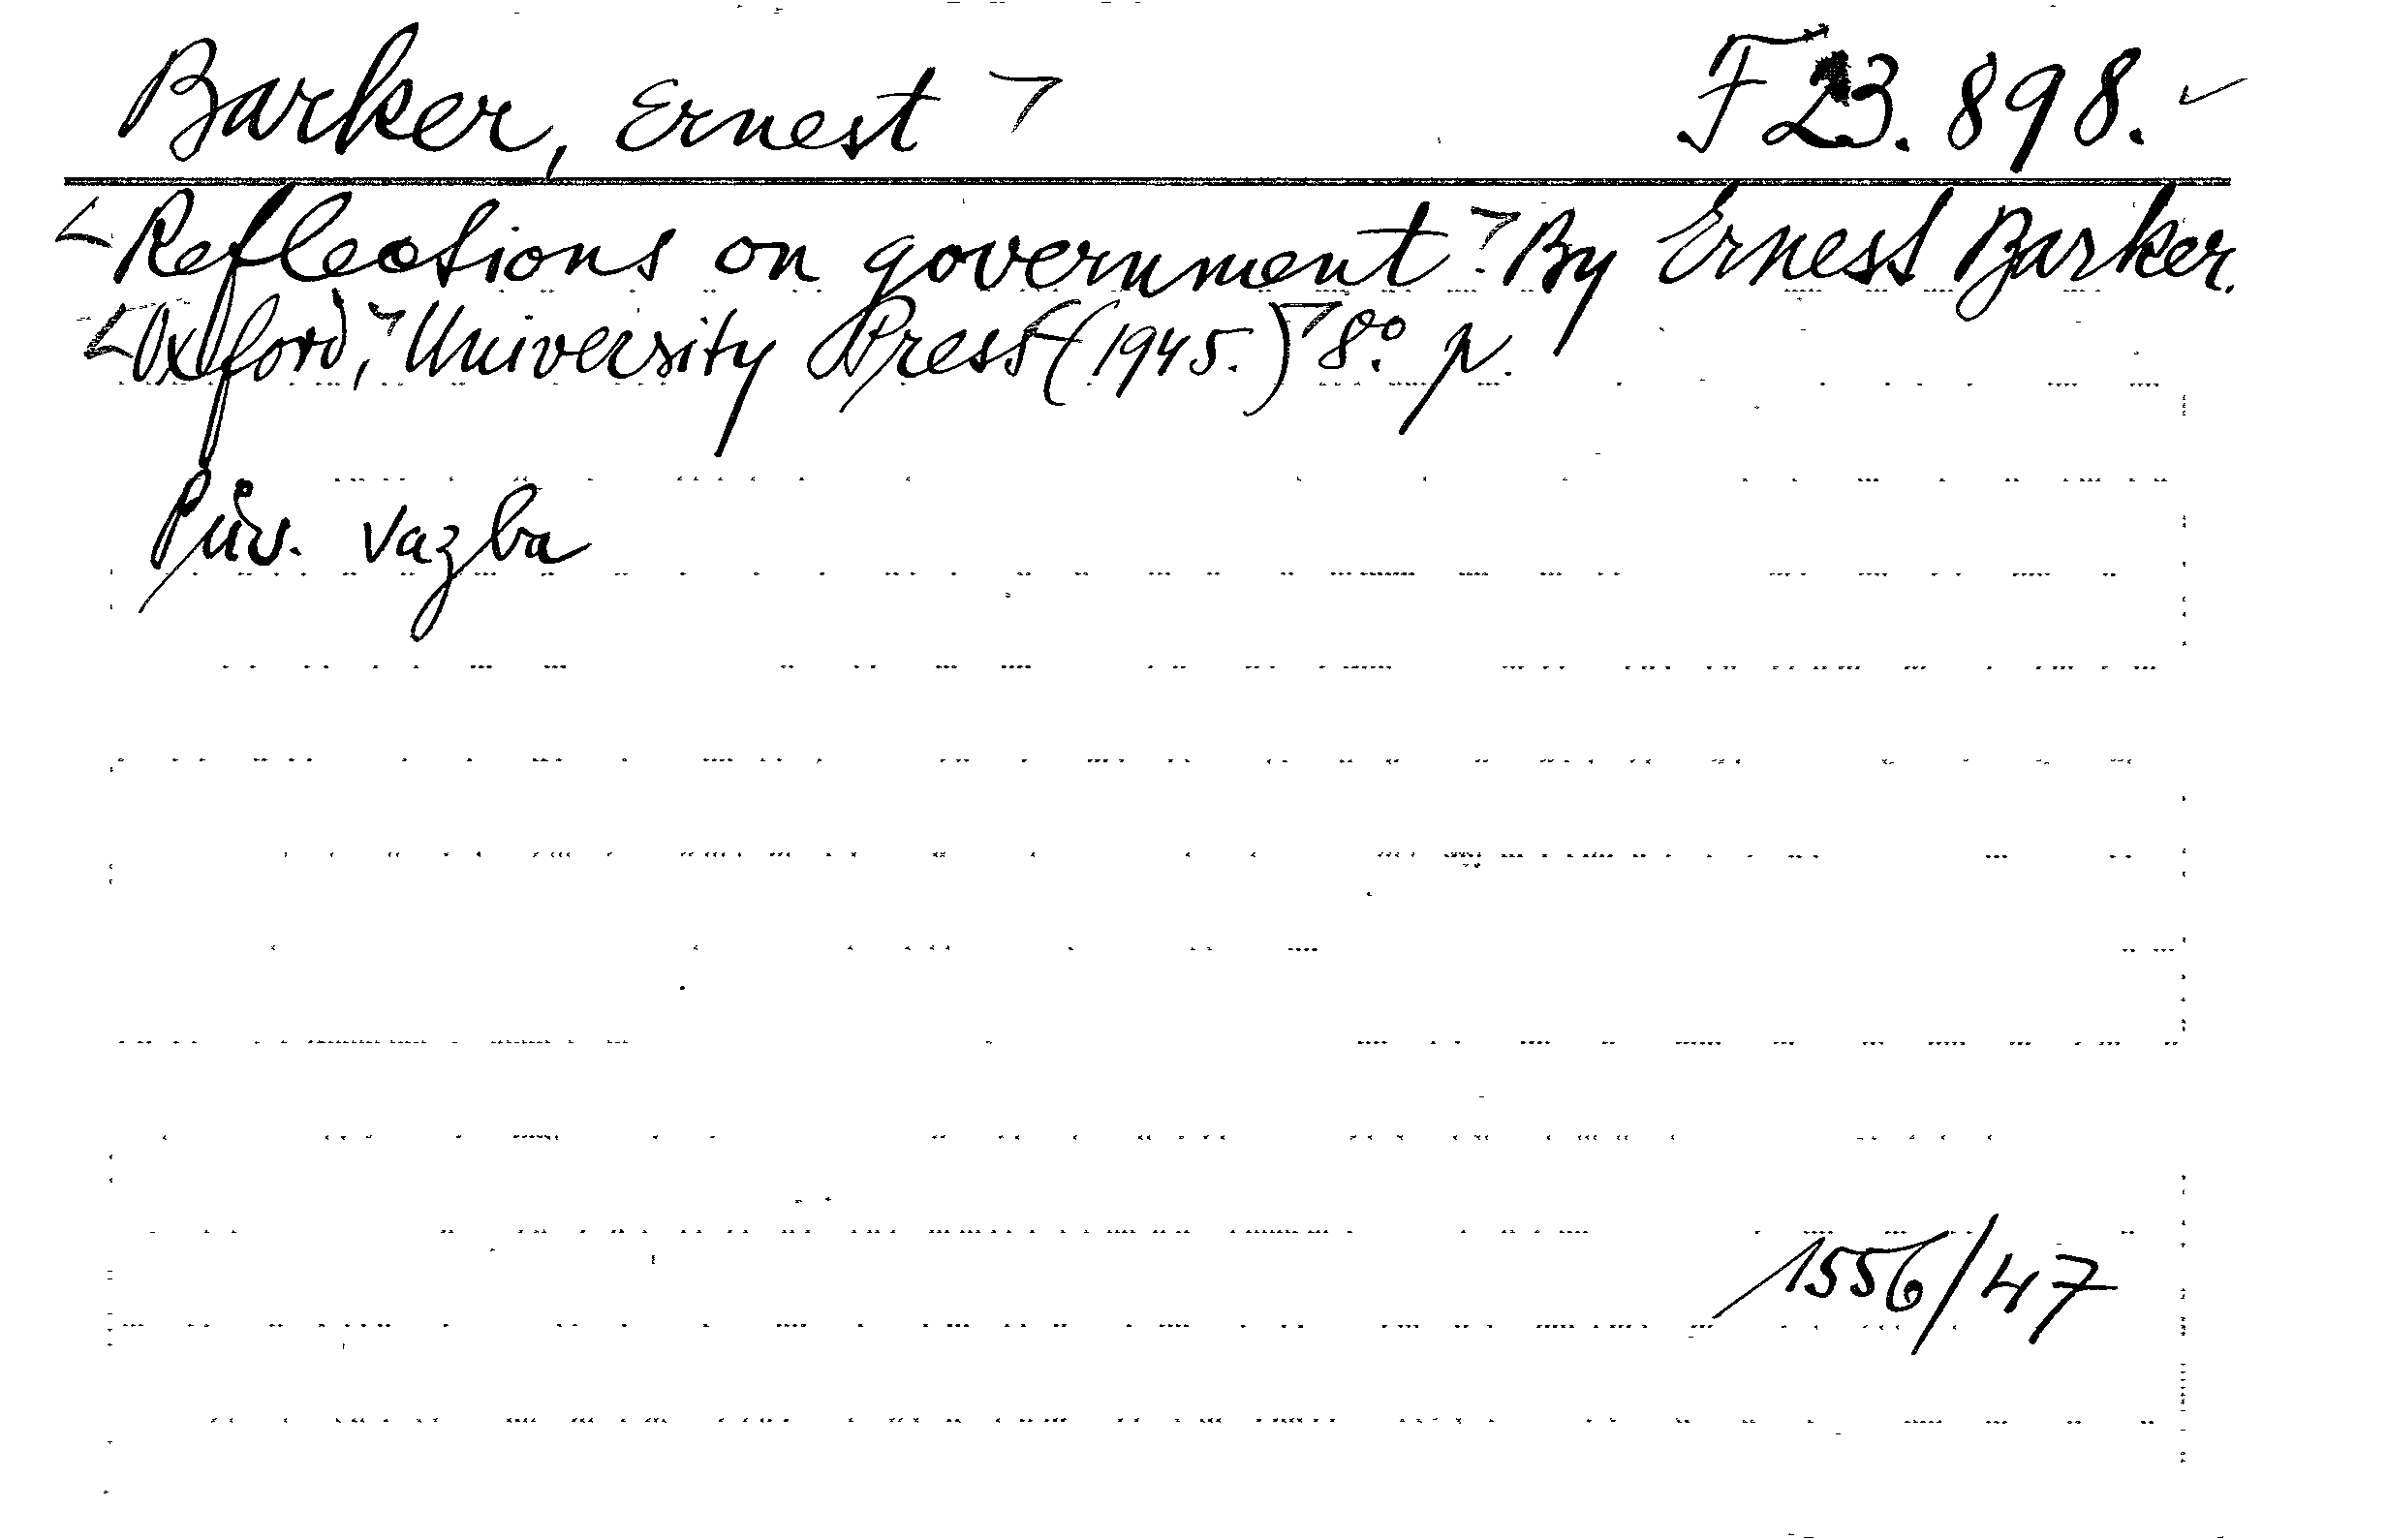 Barker, Ernest ┐ F 23.898.
<Reflections on government┐. By Ernest Barker.
<Oxford,┐ University Press (1945.)┐ 8°. p.
Pův. vazba
1556/47